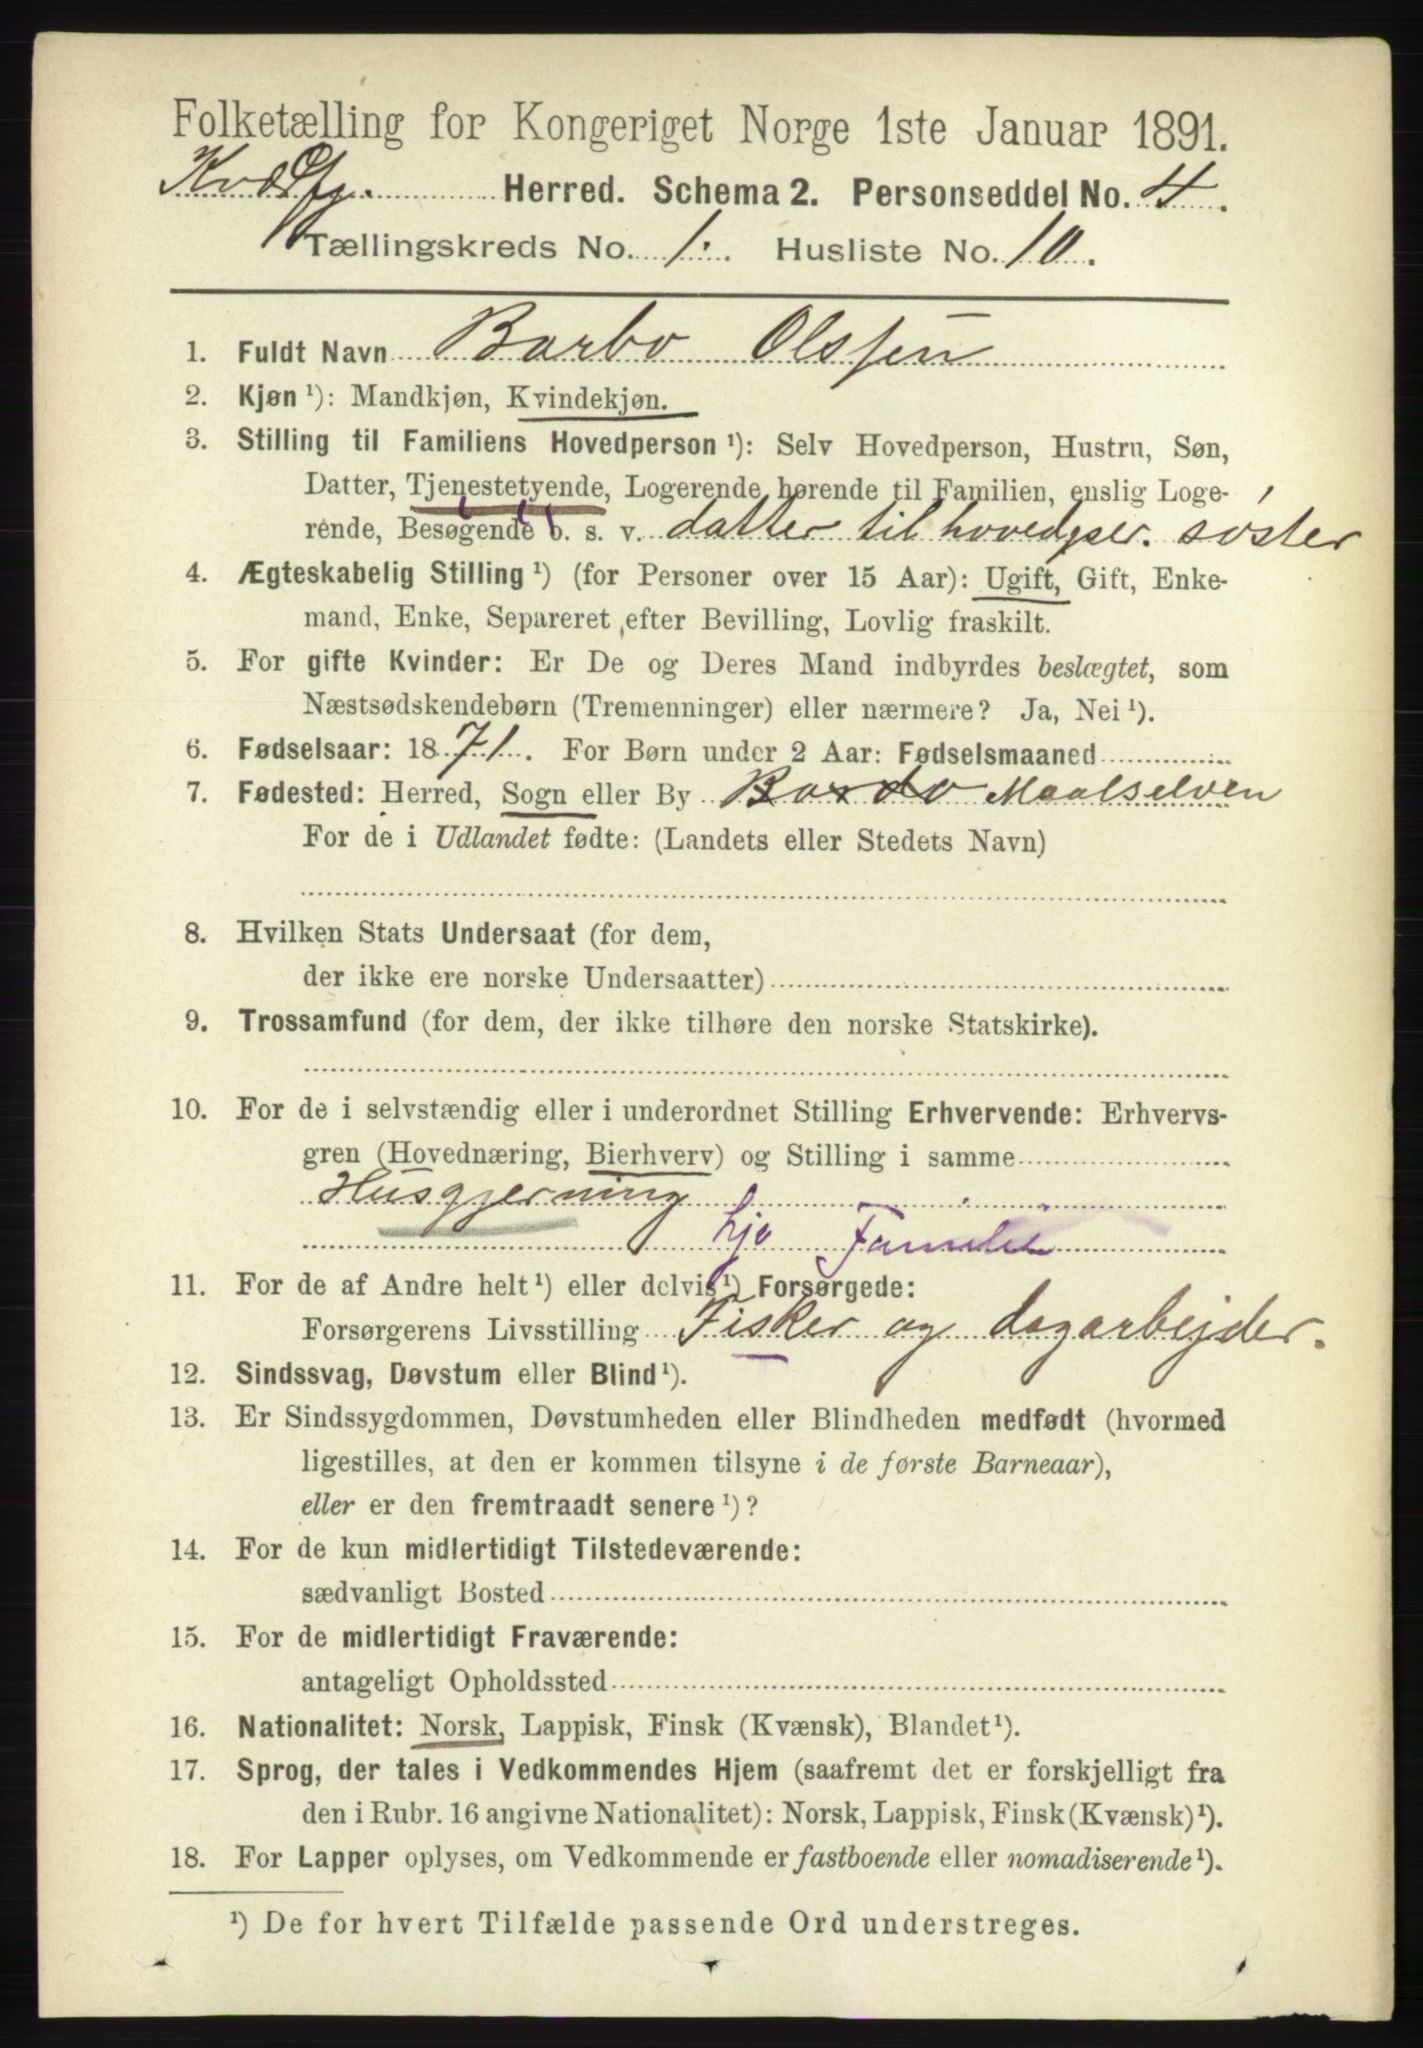 Folketælling for Kongeriget Norge 1ste Januar 1891.
Kvædfj. Herred. Schema 2. Personseddel No. 4.
Tællingskreds No. 1. Husliste No. 10.
1. Fuldt Navn Barbo Olssen
2. Kjøn ¹): Mandkjøn, Kvindekjøn.
3. Stilling til Familiens Hovedperson ¹): Selv Hovedperson, Hustru, Søn,
Datter, Tjenestetyende, Logerende hørende til Familien, enslig Loge-
rende, Besøgende o. s. v. datter til hovedper. søster
4. Ægteskabelig Stilling ¹) (for Personer over 15 Aar): Ugift, Gift, Enke-
mand, Enke, Separeret efter Bevilling, Lovlig fraskilt.
5. For gifte Kvinder: Er De og Deres Mand indbyrdes beslægtet, som
Næstsødskendebørn (Tremenninger) eller nærmere? Ja, Nei ¹).
6. Fødselsaar: 1871. For Børn under 2 Aar: Fødselsmaaned
7. Fødested: Herred, Sogn eller By Bardo Maalselven
For de i Udlandet fødte: (Landets eller Stedets Navn)
8. Hvilken Stats Undersaat (for dem,
der ikke ere norske Undersaatter)
9. Trossamfund (for dem, der ikke tilhøre den norske Statskirke).
10. For de i selvstændig eller i underordnet Stilling Erhvervende: Erhvervs-
gren (Hovednæring, Bierhverv) og Stilling i samme
Husgjerning
hjo Familie
11. For de af Andre helt ¹) eller delvis ¹) Forsørgede:
Forsørgerens Livsstilling Fisker og dagarbejder.
12. Sindssvag, Døvstum eller Blind ¹).
13. Er Sindssygdommen, Døvstumheden eller Blindheden medfødt (hvormed
ligestilles, at den er kommen tilsyne i de første Barneaar),
eller er den fremtraadt senere ¹)?
14. For de kun midlertidigt Tilstedeværende:
sædvanligt Bosted
15. For de midlertidigt Fraværende:
antageligt Opholdssted
16. Nationalitet: Norsk, Lappisk, Finsk (Kvænsk), Blandet ¹).
17. Sprog, der tales i Vedkommendes Hjem (saafremt det er forskjelligt fra
den i Rubr. 16 angivne Nationalitet): Norsk, Lappisk, Finsk (Kvænsk) ¹).
18. For Lapper oplyses, om Vedkommende er fastboende eller nomadiserende ¹).
¹) De for hvert Tilfælde passende Ord understreges.